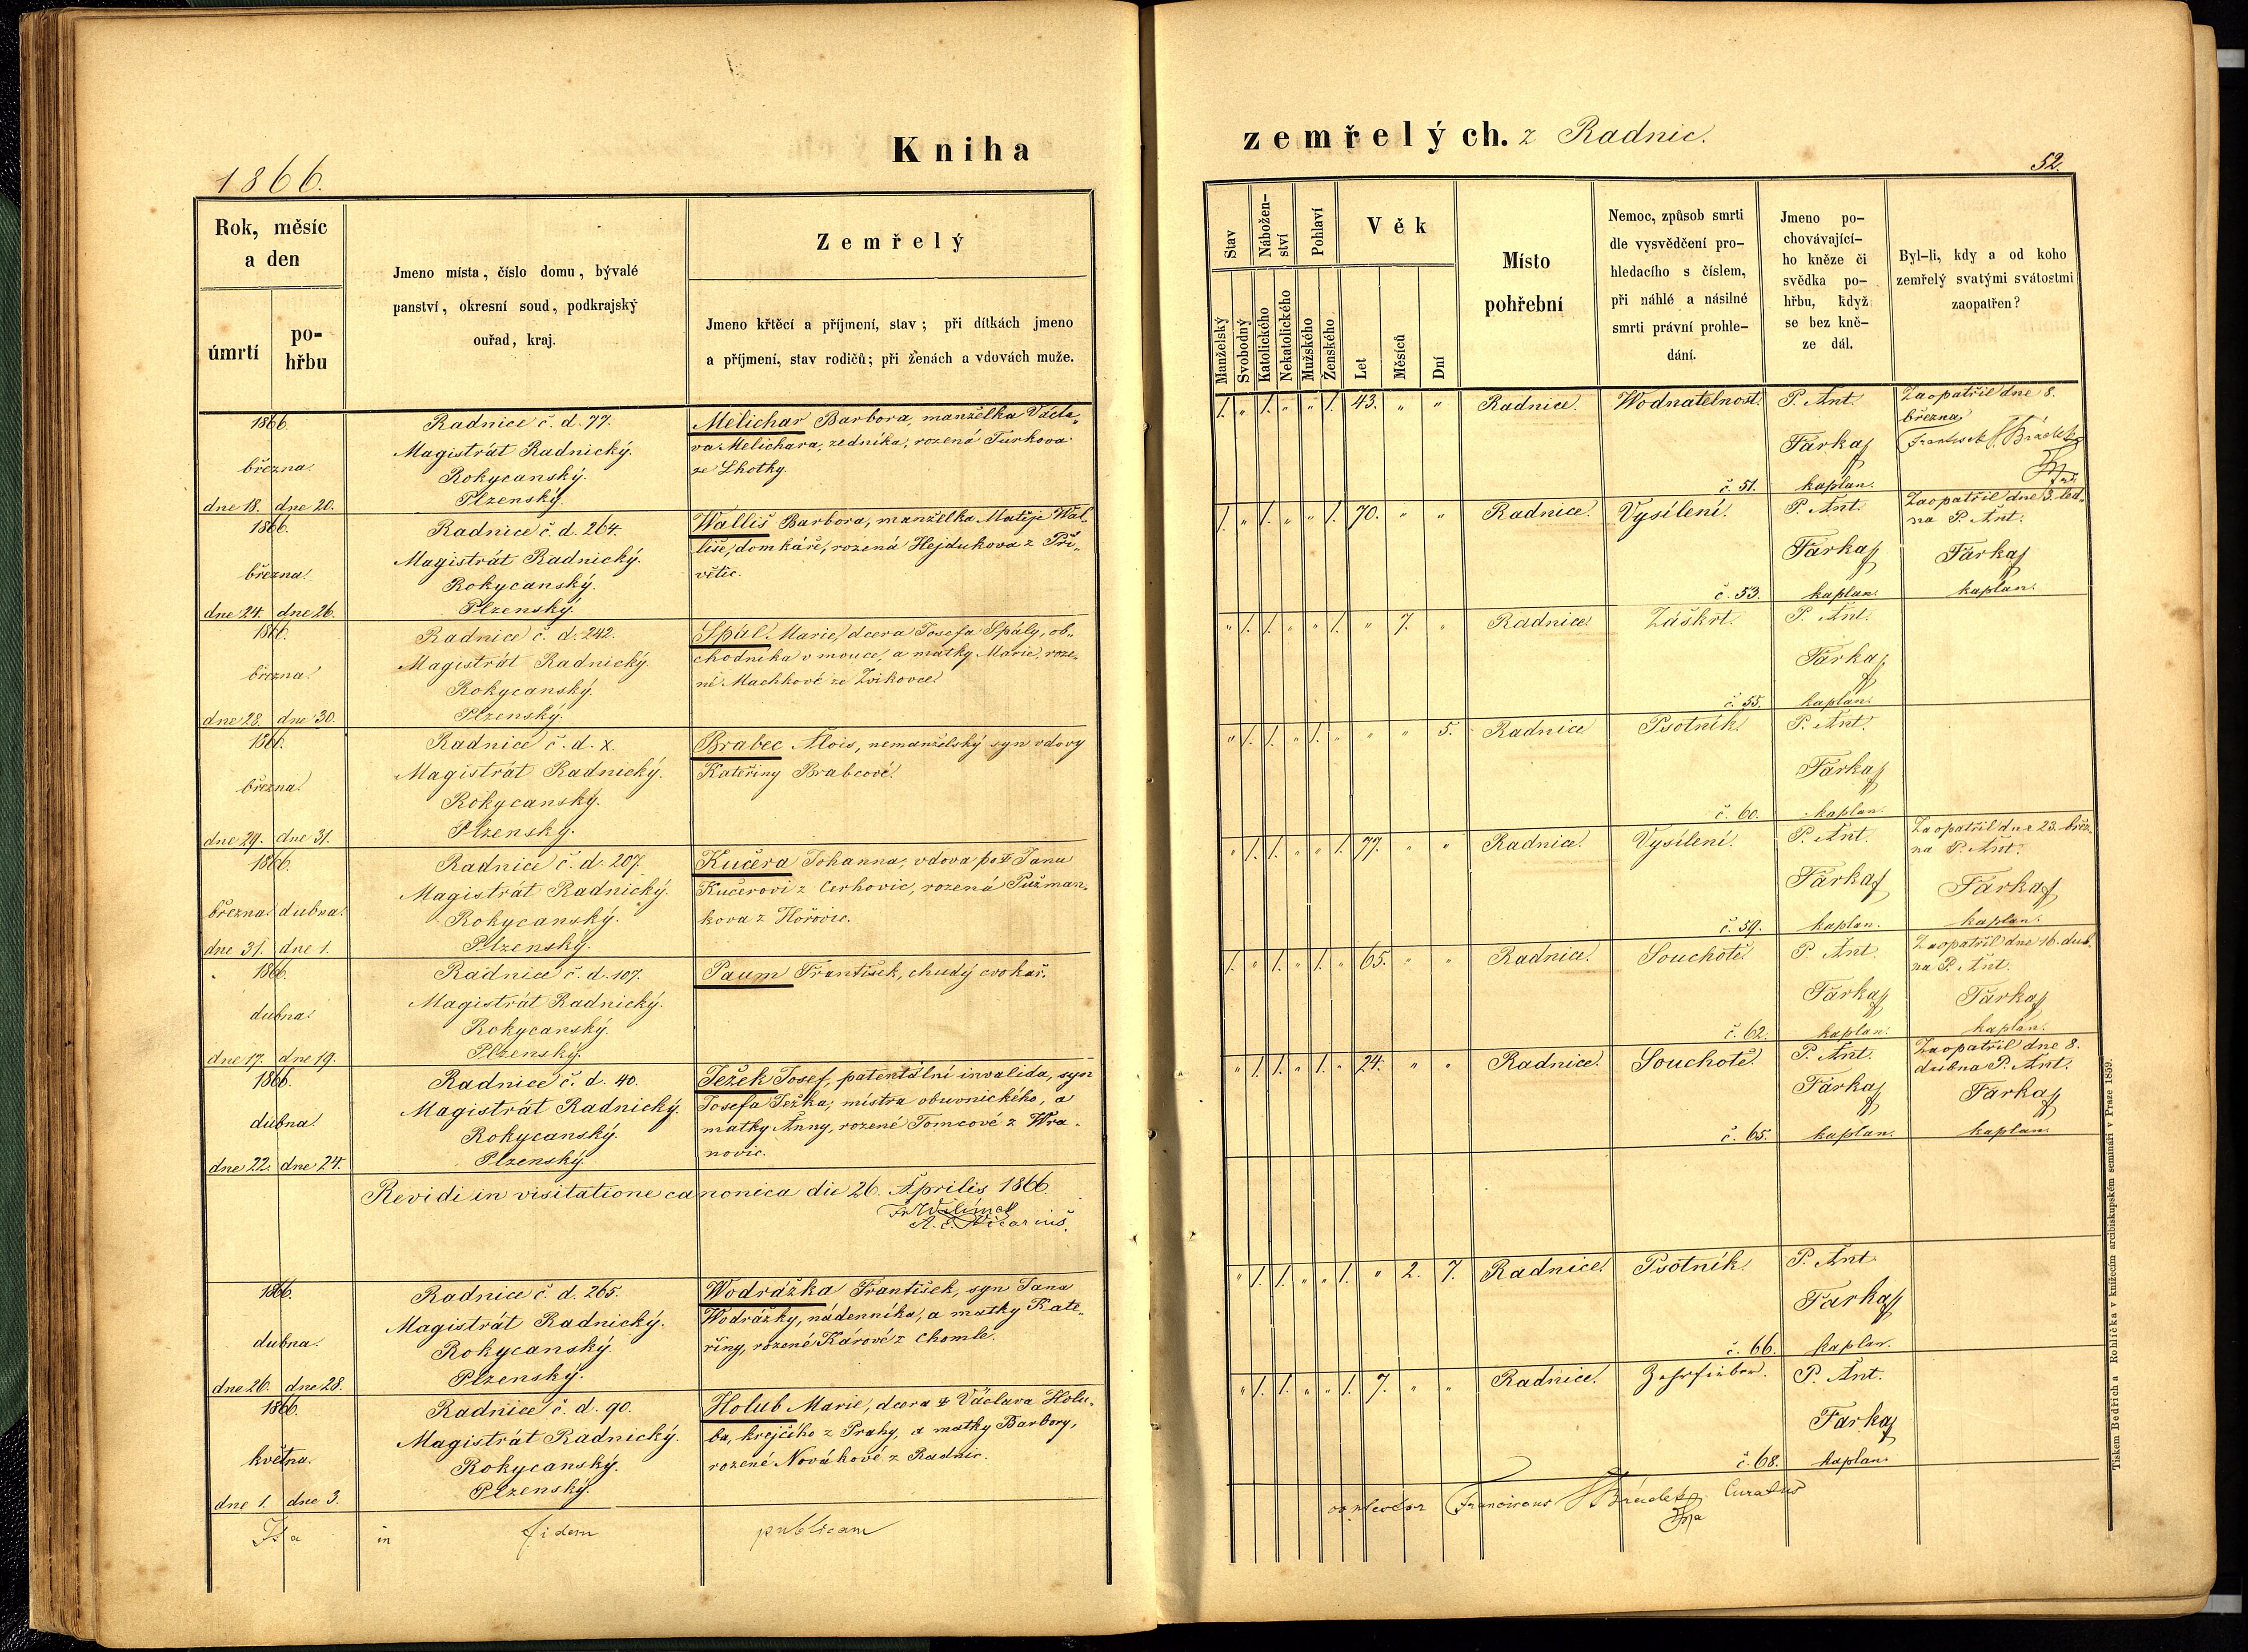 Kniha
1866.
Rok, měsíc
a den
úmrtí
po-
hřbu
Jmeno místa, číslo domu, bývalé
panství, okresní soud, podkrajský
ouřad, kraj.
Zemřelý
Jmeno křtěcí a příjmení, stav; při dítkách jmeno
a příjmení, stav rodičů; při ženách a vdovách muže.
1866.
března.
dne 18. dne 20.
Radnice č. d. 77.
Magistrát Radnický.
Rokycanský.
Plzenský.
Melichar Barbora, manželka Václa„
va Melichara, zedníka, rozená Turkova
ze Lhotky.
1866.
března.
dne 24. dne 26.
Radnice č. d. 264.
Magistrát Radnický.
Rokycanský.
Plzenský.
Walliš Barbora, manželka Matěje Wal„
liše, domkáře, rozená Hejdukova z Při„
větic.
1866.
března.
dne 28. dne 30.
Radnice č. d. 242.
Magistrát Radnický.
Rokycanský.
Plzenský.
Spál Marie, dcera Josefa Spály, ob„
chodníka v mouce, a matky Marie, roze„
né Machkové ze Zvíkovce.
1866.
března.
dne 29. dne 31.
Radnice č. d. x.
Magistrát Radnický.
Rokycanský.
Plzenský.
Brabec Alois, nemanželský syn vdovy
Kateřiny Brabcové.
1866.
března. dubna.
dne 31. dne 1.
Radnice č. d. 207.
Magistrát Radnický.
Rokycanský.
Plzenský.
Kučera Johanna, vdova po Janu
Kučerovi z Cerhovic, rozená Pužman„
kova z Hořovic.
1866.
dubna.
dne 17. dne 19.
Radnice č. d. 107.
Magistrát Radnický.
Rokycanský.
Plzenský.
Paum František, chudý cvokař.
1866.
dubna.
dne 22. dne 24.
Radnice č. d. 40.
Magistrát Radnický.
Rokycanský.
Plzenský.
Ježek Josef, patentální invalida, syn
Josefa Ježka, mistra obuvnického, a
matky Anny, rozené Tomcové z Wra„
novic.
Revidi in visitatione canonica die 26. Aprilis 1866.
Vicarius.
1866.
dubna.
dne 26. dne 28.
Radnice č. d. 265.
Magistrát Radnický.
Rokycanský.
Plzenský.
Wodrážka František, syn Jana
Wodrážky, nádenníka, a matky Kate„
řiny, rozené Kárové z Chomle.
1866.
května.
dne 1. dne 3.
Radnice č. d. 90.
Magistrát Radnický.
Rokycanský.
Plzenský.
Holub Marie, dcera Václava Holu„
ba, krejčího z Prahy, a matky Barbory,
rozené Novákové z Radnic.
Ita in fidem publicam
zemřelých. z Radnic.
52.
Stav
Nábožen-
ství
Pohlaví
Věk
Manželský
Svobodný
Katolického
Nekatolického
Mužského
Ženského
Let
Měsíců
Dní
Místo
pohřební
Nemoc, způsob smrti
dle vysvědčení pro-
hledacího s číslem,
při náhlé a násilné
smrti právní prohle-
dání.
Jmeno po-
chovávající-
ho kněze či
svědka po-
hřbu, když
se bez kně-
ze dál.
Byl-li, kdy a od koho
zemřelý svatými svátostmi
zaopatřen?
1. „ 1. „ „ 1. 43. „ „ Radnice. Wodnatelnost. č. 51.
P. Ant.
Farkaš
kaplan.
Zaopatřil dne 8.
března
František
1. „ 1. „ „ 1. 70. „ „ Radnice. Vysílení. č. 53.
P. Ant.
Farkaš
kaplan.
Zaopatřil dne 3. led„
na P. Ant.
Farkaš
kaplan.
„ 1. 1. „ „ 1. „ 7. „ Radnice. Záškrt. č. 55.
P. Ant.
Farkaš
kaplan.
„ 1. 1. „ 1. „ „ „ 5. Radnice Psotník. č. 60.
P. Ant.
Farkaš
kaplan.
„ 1. 1. „ „ 1. 77. „ „ Radnice. Vysílení. č. 59.
P. Ant.
Farkaš
kaplan.
Zaopatřil dne 23. břez„
na P. Ant.
Farkaš
kaplan.
1. „ 1. „ 1. „ 65. „ „ Radnice. Souchotě. č. 62.
P. Ant.
Farkaš
kaplan.
Zaopatřil dne 16. dub„
na P. Ant.
Farkaš
kaplan.
„ 1. 1. „ 1. „ 24. „ „ Radnice. Souchotě. č. 65.
P. Ant.
Farkaš
kaplan.
Zaopatřil dne 8.
dubna P. Ant.
Farkaš
kaplan.
„ 1. 1. „ „ 1. „ 2. 7. Radnice. Psotník. č. 66.
P. Ant.
Farkaš
kaplan.
„ 1. 1. „ „ 1. 7. „ „ Radnice. č. 68.
P. Ant.
Farkaš
kaplan.
Franciscus Curatus
Tiskem Bedřicha Rohlíčka v knížecím arcibiskupském semináři v Praze 1859.